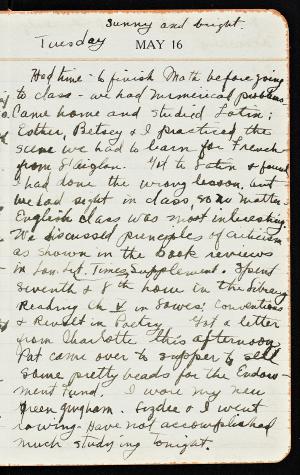 Sunny and bright.
Tuesday MAY 16
Had time to finish Math before going
to class - we had numerical problems.
Came home and studied Latin;
Esther, Betsey & I practiced the
scene we had to learn for French
from L'Aiglon. Got to Latin & found
I had done the wrong lesson, but
we had sight in class, so no matter.
English class was most interesting.
We discussed principles of criticism
as shown in the book reviews
in Lon. Lit. Times Supplement. Spent
seventh & 8th hour in the library
Reading Ch V in Lowes: Conventions
& Revolt in Poetry. Got a letter
from Charlotte this afternoon.
Pat came over to supper to sell
some pretty beads for the Endow-
ment Fund. I wore my new
green gingham. & I went
rowing. Have not accomplished
much studying tonight.